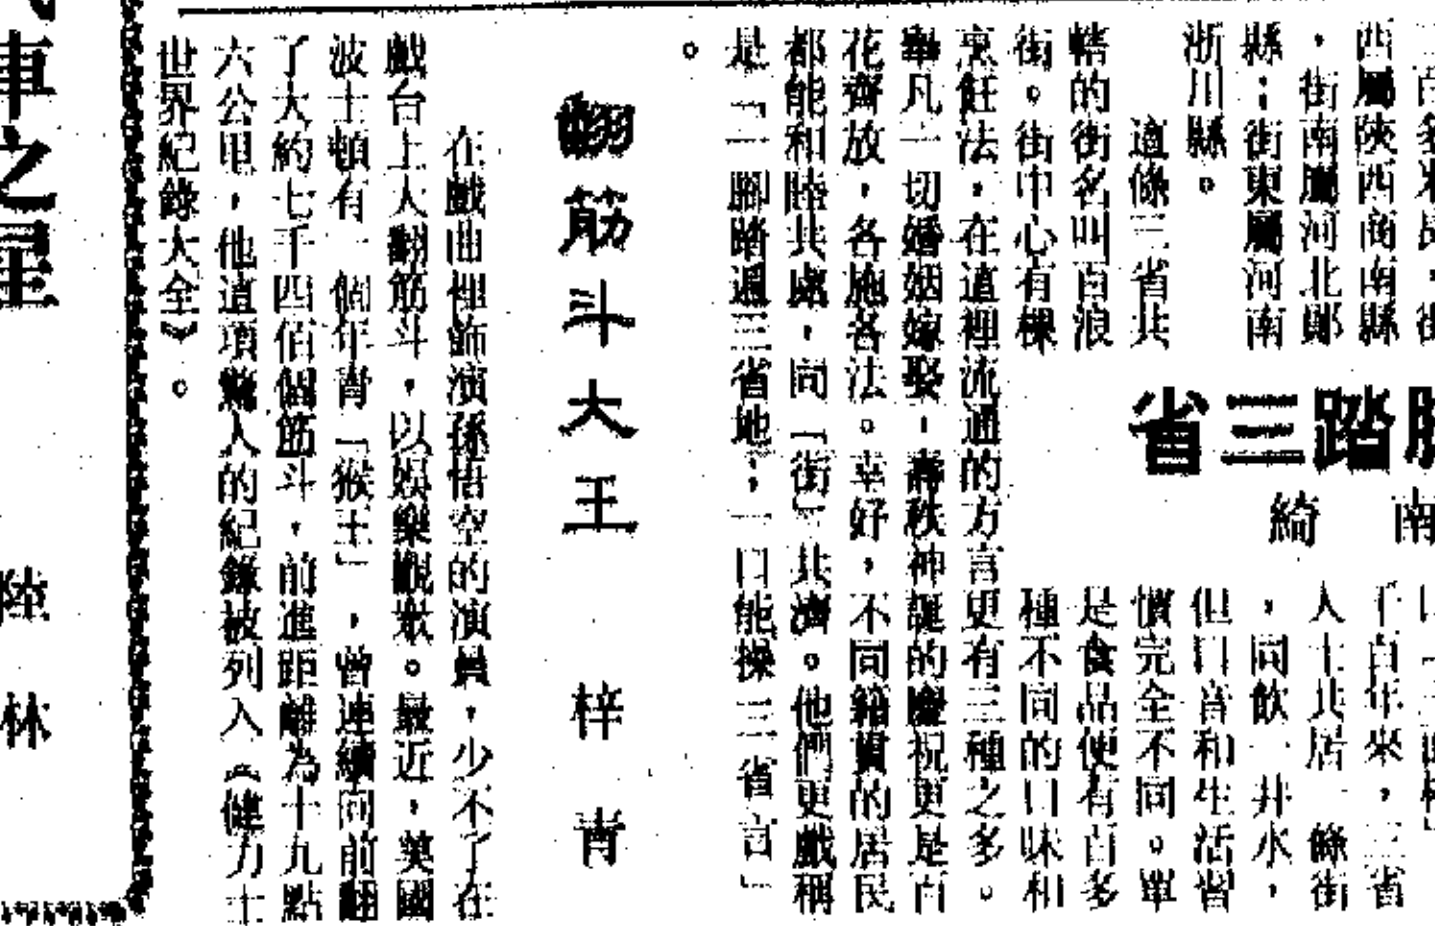 百多米長，街
西屬陝西商南縣
，街南屬河北鄖
縣；街東屬河南
淅川縣。
這條三省共
轄的街名叫百浪
街。街中心有棵
踏三省
南綺
千百年來，三省
人士共居一條街
，同飲一井水，
但口音和生活習
慣完全不同。單
是食品便有百多
種不同的口味和
烹飪法，在這裡流通的方言更有三種之多。
舉凡一切婚姻嫁娶，壽秩神誕的慶祝更是百
花齊放，各施各法。幸好，不同籍貫的居民
都能和陸共處，同「街」共濟。他們更戲稱
是「一腳踏遍三省地；一口能操三省言」
。
翻筋斗大王
梓青
在戲曲裡飾演孫悟空的演員，少不了在
戲台上大翻筋斗，以娛樂觀眾。最近，英國
波士頓有一個年青「猴王」，曾連續向前翻
了大約七千四佰個筋斗，前進距離為十九點
六公里，他這項驚人的紀錄被列入《健力士
世界紀錄大全》。
車之星
陸林